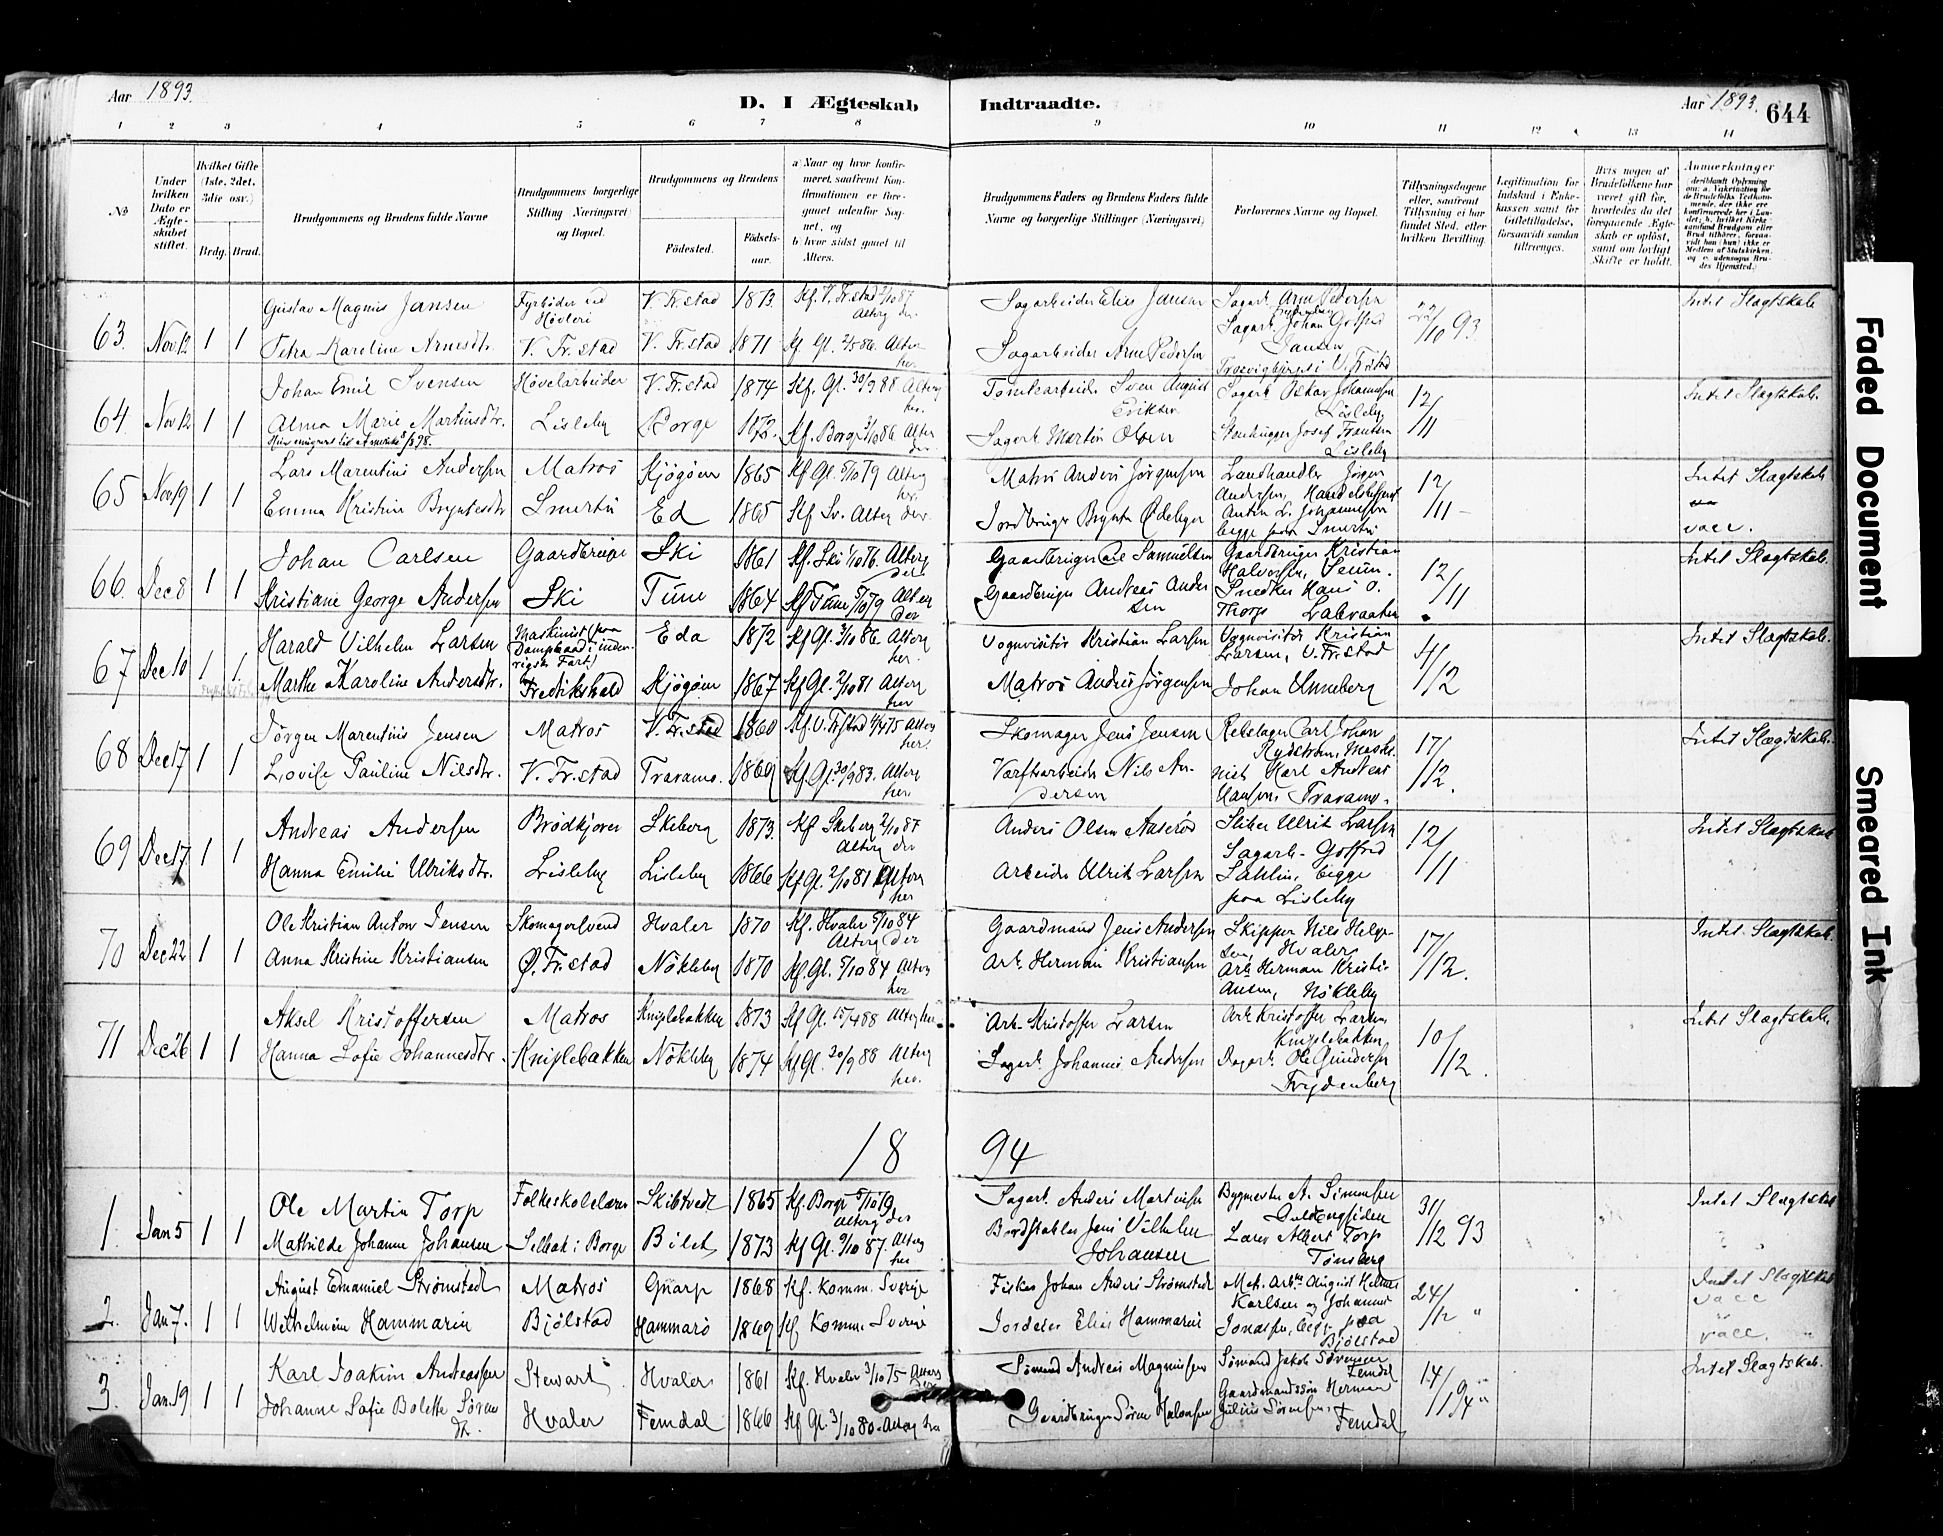 Aar 1893.
D. I Ægteskab Indtraadte.
Aar 1893. 644
1 2 3 4 5 6 7 8 9 10 11 12 13 14
No
Under hvilken Dato er Ægteskabet stiftet.
Hvilket Gifte (1ste, 2det, 3die osv.)
Brdg. Brud.
Brudgommens og Brudens fulde Navne
Brudgommens borgerlige Stilling Næringsvei og Bopæl.
Brudgommens og Brudens
Födested.
Födselsaar.
a) Naar og hvor konfirmeret, saafremt Konfirmationen er foregaaet udenfor Sognet, og
b) hvor sidst gaaet til Alters.
Brudgommens Faders og Brudens Faders fulde Navne og borgerlige Stillinger (Næringsvei)
Forlovernes Navne og Bopæl.
Tillysningsdagene eller, saafremt Tillysning ei har fundet Sted, efter hvilken Bevilling.
Legitimation for Indskud i Enkekassen samt for Giftetilladelse, forsaavidt saadan tiltrænges.
Hvis nogen af Brudefolkene har været gift før, hvorledes da det foregaaende Ægteskab er opløst, samt om lovligt Skifte er holdt.
Anmærkninger
63. Nov 12 1 1
Gustav Magnus Jansen
Fyrbøder ved Høvleri
V. Fr.stad 1873
Kf. V. Fr.stad 2/10 87 Alterg der
Sagarbeider Elias Jansen
Sagarb. Arne Pedersen
22/10 93
Intet Slagtskab
Petra Karoline Arnesdtr.
V. Fr.stad
V. Fr.stad 1871
Kf. Gl. 2/5 86. Alter her.
Sagarbeider Arne Pedersen
Sagarb. Johan Gotfred Jansen
64. Nov 12 1 1
Johan Emil Svensen
Høvelarbeider
V. Fr.stad 1874
Kf. Gl. 30/9 88 Alterg her.
Tomtearbeider Sven August Eriksen
Sagarb. Oskar Johannesen Lisleby
12/11
Intet Slagtskab.
Alma Marie Martinsdtr.
Lisleby
Borge 1872.
Kf. Borge 3/10 86 Alter der
Sagarb. Martin Olsen
Stenhugger Josef Frantsen Lisleby
65 Nov 19 1 1
Lars Marentius Andersen
Matros
Kjøgøen 1865
Kf Gl. 5/10 79 Alterg her.
Matros Anders Jørgensen
Landhandler Jörgen Andersen,
12/11
Intet Slagtskab
Emma Kristine Bryntesdtr
Smertu
Ed 1865
Kf Sv. Alterg der.
Anton L. Johannesen
begge paa Smertu
vacc.
66. Dec 8 1 1
Johan Carlsen
Gaardbruger
Ski 1861
Kf. Ski 1/10 76. Alterg der
Gaardbruger Carl Samuelsen
Gaardbruger Kristian Halvorsen,
12/11
Intet Slagtskab.
Kristiane George Andersen
Ski
Tune 1864
Kf Tune 5/10 79 Alter der
Gaardbruger Andreas Andersen
Snedker Hans O. Thorp Labraaten
67 Dec 10 1 1.
Harald Vilhelm Larsen
Maskinist paa Dampbaad i indenrigsk Fart)
Eda 1872
Kf Gl. 3/10 86. Alterg her.
Vognvisitör Kristian Larsen
Vognvisitör Kristian Larsen, V. Fr.stad
4/12
Intet Slagtskab.
Marthe Karoline Andersdtr.
Fredrikshald
Kjøgøen 1867
Kf Gl. 2/10 81 Alterg her
Matros Anders Jörgensen
Johan Unneberg
68 Dec 17 1 1
Jörgen Marentius Jensen
Matros
V. Fr.stad 1860
Kf. V. Fr.stad 4/4 75 Alterg her.
Skomager Jens Jensen
Rebslager Carl Johan Rydström,
17/12.
Intet Slægtskab.
Lovise Pauline Nilsdtr.
V. Fr.stad
Traramo. 1869
Kf Gl. 30/9 83. Alterg her.
Værftsarbeider Nils Andersen
Karl Andreas Hansen Traramo.
69 Dec 17 1 1
Andreas Andersen
Brödkjører
Skeberg 1873.
Kf Skeberg 2/10 87 Alterg der
Anders Olsen Aaserød
Sliber Ulrik Larsen
12/11
Intet Slagtskab
Hanna Emilie Ulriksdtr.
Lisleby
Lisleby 1866
Kf Gl. 2/10 81 Alterg her
Arbeider Ulrik Larsen
Sagarb. Gotfred Sahlin, begge paa Lisleby
70 Dec 22 1 1
Ole Kristian Anton Jensen
Skomagersvend
Hvaler 1870
Kf. Hvaler 5/10 84 Alterg der
Gaardmand Jens Andersen
Skipper Nils Helgesen, Hvaler
17/12.
Intet Slagtskab.
Anna Kristine Kristiansen
Ø. Fr.stad
Nökleby 1870
Kf. Gl. 5/10 84 Alterg her
Arb. Herman Kristiansen
Arb. Herman Kristiansen, Nökleby
71 Dec 26 1 1
Aksel Kristoffersen
Matros
Kniplebakken 1873
Kf Gl. 15/4 88 Alterg her.
Arb. Kristoffer Larsen
Arb. Kristoffer Larsen Kniplebakken
10/12.
Intet Slagtskab.
Hanna Sofie Johannesdtr.
Kniplebakken
Nökleby 1874
Kf Gl. 30/9 88 Alterg her.
Sagarb. Johannes Andersen
Sagarb. Ole Gundersen Frydenberg
18 94
1. Jan 5 1 1
Ole Martin Torp
Folkeskolelærer
Skibtvedt 1865
Kf. Borge 5/10 79 Alterg der
Sagarb. Anders Martinsen
Bygmester A. Simensen
31/12 93
Intet Slagtskab
Mathilde Johanne Johansen
Selbak i Borge
Bilet 1873
Kf Gl. 9/10 87. Alterg her
Bordstabler Jens Vilhelm Johansen
Lærer Albert Torp Tønsberg
2. Jan 7. 1 1
August Emanuel Strømstedt
Matros
Gnarp 1868
Kf. Komm. Sverige
Fisker Johan Anders Strømstedt
August Helmer Karlsen og Johannes Jonassen, begge paa Bjölstad
24/12 "
Intet Slagtskab
vacc
Wilhelmine Hammarin
Bjölstad
Hammarö 1869
Kf Komm. Sverige
Elias Hammarin
vacc. "
3. Jan 19 1 1
Karl Joakim Andreassen
Stewart
Hvaler 1861
Kf. Hvaler 3/10 75 Alterg der
Sømand Andreas Magnussen
Sømand Jakob Sørensen Femdal
14/1 94 "
Intet Slagtskab.
Johanne Sofie Bolette Sörensdtr.
Hvaler
Femdal 1866
Kf Gl. 3/10 80. Alterg her
Gaardbruger Sören Halvorsen
Gaardmandssön Herman Julius Sörensen, Femdal
Faded Document
Smeared Ink